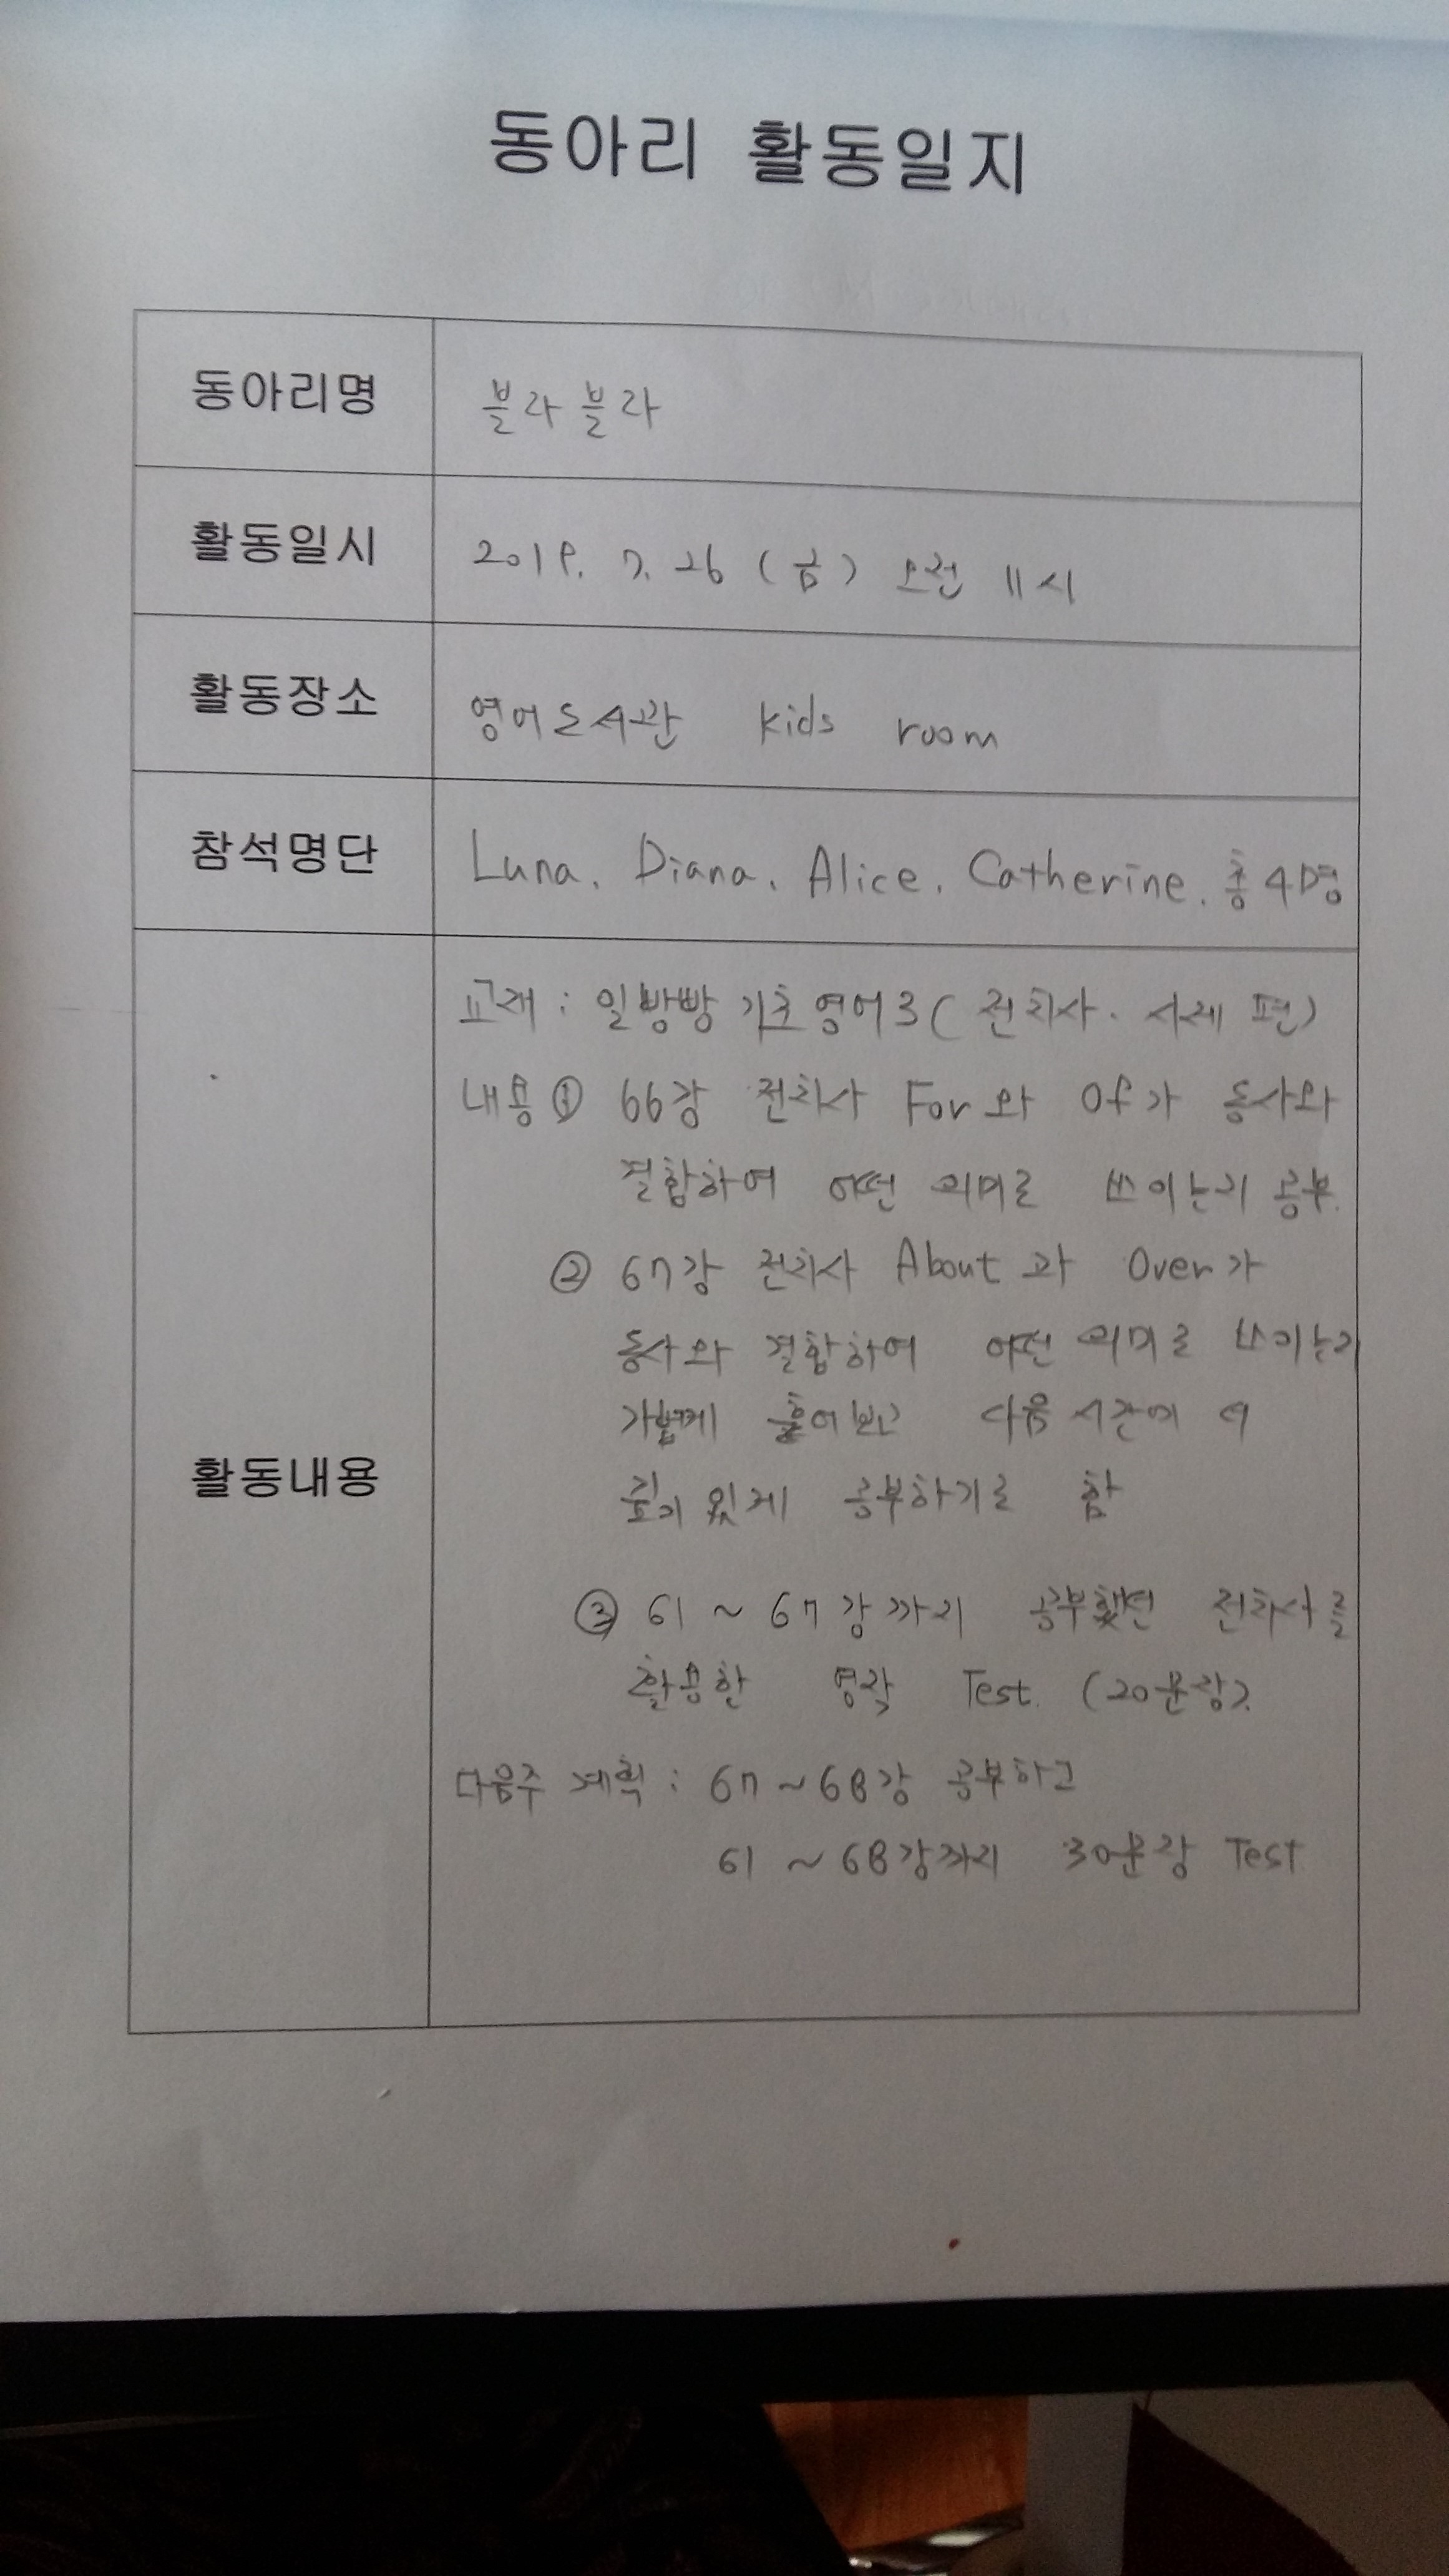 동아리 활동일지
동아리명
블라블라
활동일시
2019. 7. 26 (금) 오전 11시
활동장소
영어도서관 kids room
참석명단
Luna, Diana, Alice, Catherine, 총 4명
활동내용
교재 : 일빵빵 기초영어 3 ( 전치사. 시제 편)
내용 ① 66강 전치사 For와 Of가 동사와
결합하여 어떤 의미로 쓰이는지 공부.
② 67강 전치사 About과 Over가
동사와 결합하여 어떤 의미로 쓰이는지
가볍게 훑어보고 다음 시간에 더
깊이 있게 공부하기로 함
③ 61 ~ 67강까지 공부했던 전치사를
활용한 영작 Test. (20문장).
다음주 계획 : 67 ~ 68강 공부하고
61 ~ 68강까지 30문장 Test